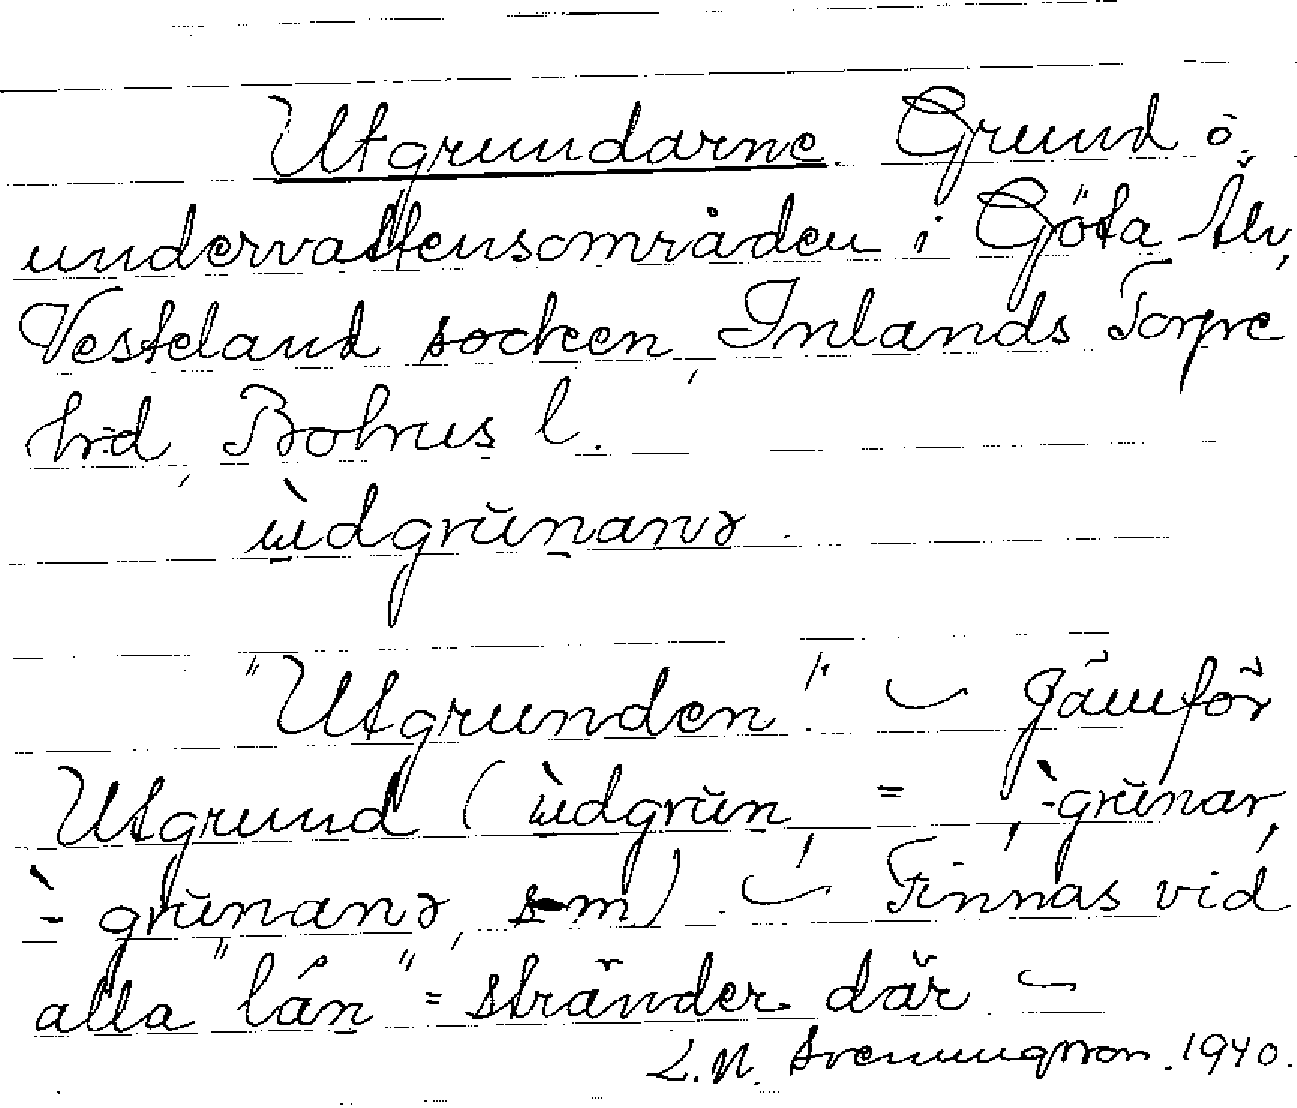 Utgrundarne. Grund o.
undervattensområden i Göta Älv,
Vesteland socken, Inlands Torpe
hrd, Bohus l.
ùdgrŭnanɘ.
"Utgrunden". – Jämför
Utgrund (ùdgrŭn, =, -̀grŭnar,
-̀grŭnanɘ, s-m). – Finnas vid
alla "lán" = stränder där –
L.N. Svenungsson. 1940.